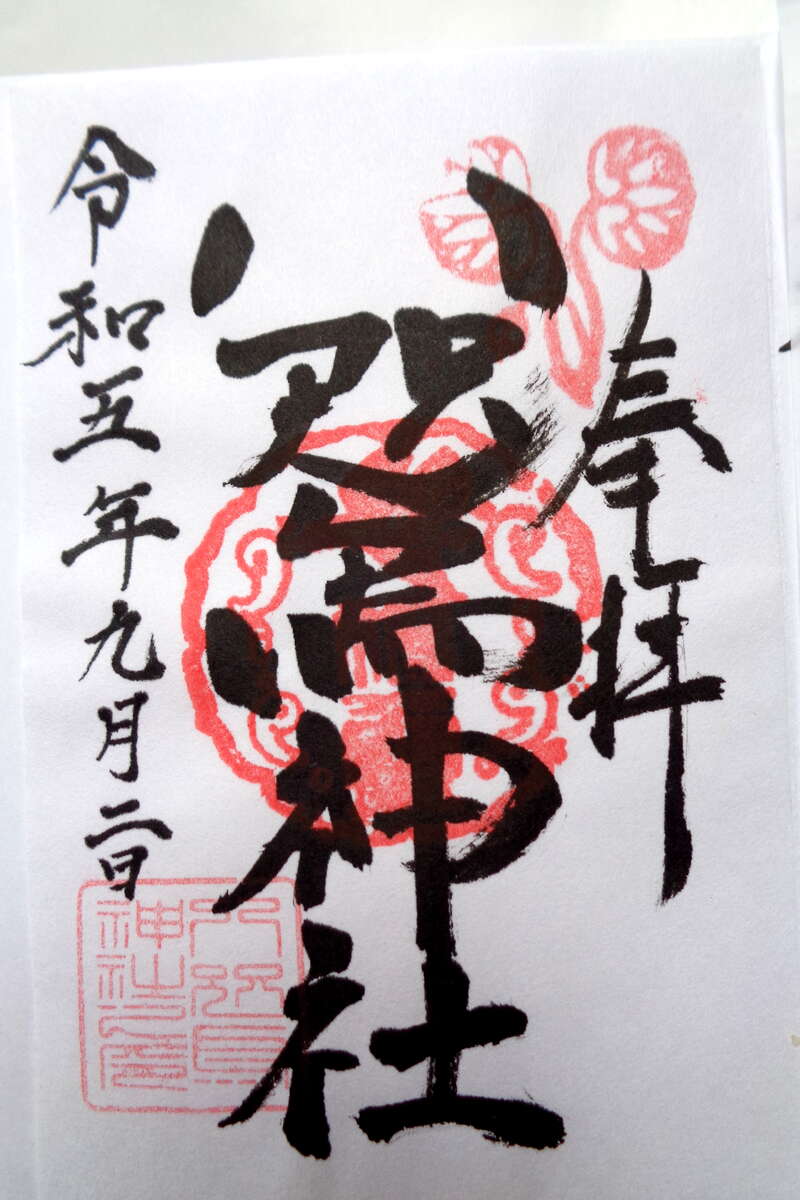 奉拝
八咫烏神社
令和五年九月二日
八咫烏
神社之印